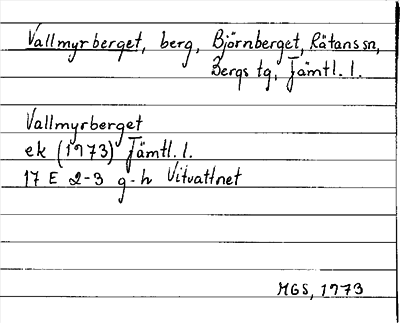 Vallmyrberget, berg, Björnberget, Rätans sn,
Bergs tg, Jämtl. l.
Vallmyrberget
ek (1973) Jämtl. l.
17 E 2-3 g-h Vitvattnet
MGS, 1973